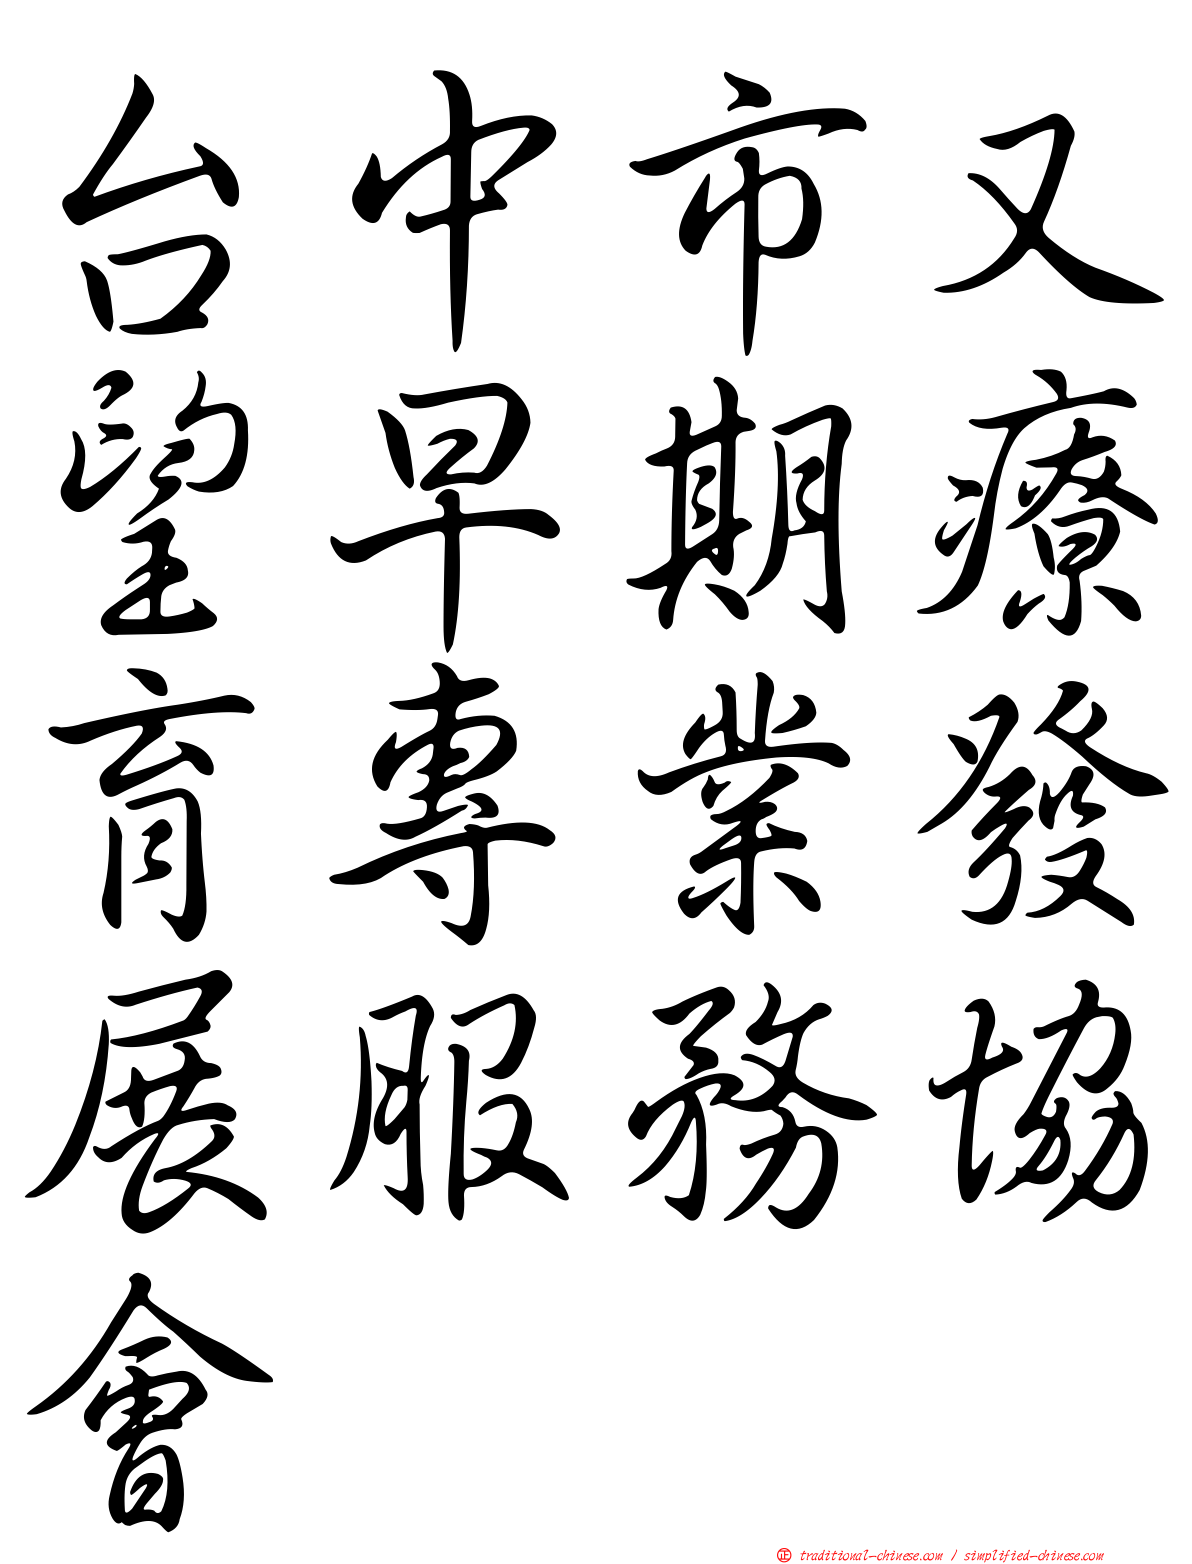 台中市又
望早期療
育專業發
展服務協
會
正 traditional-chinese.com / simplified-chinese.com